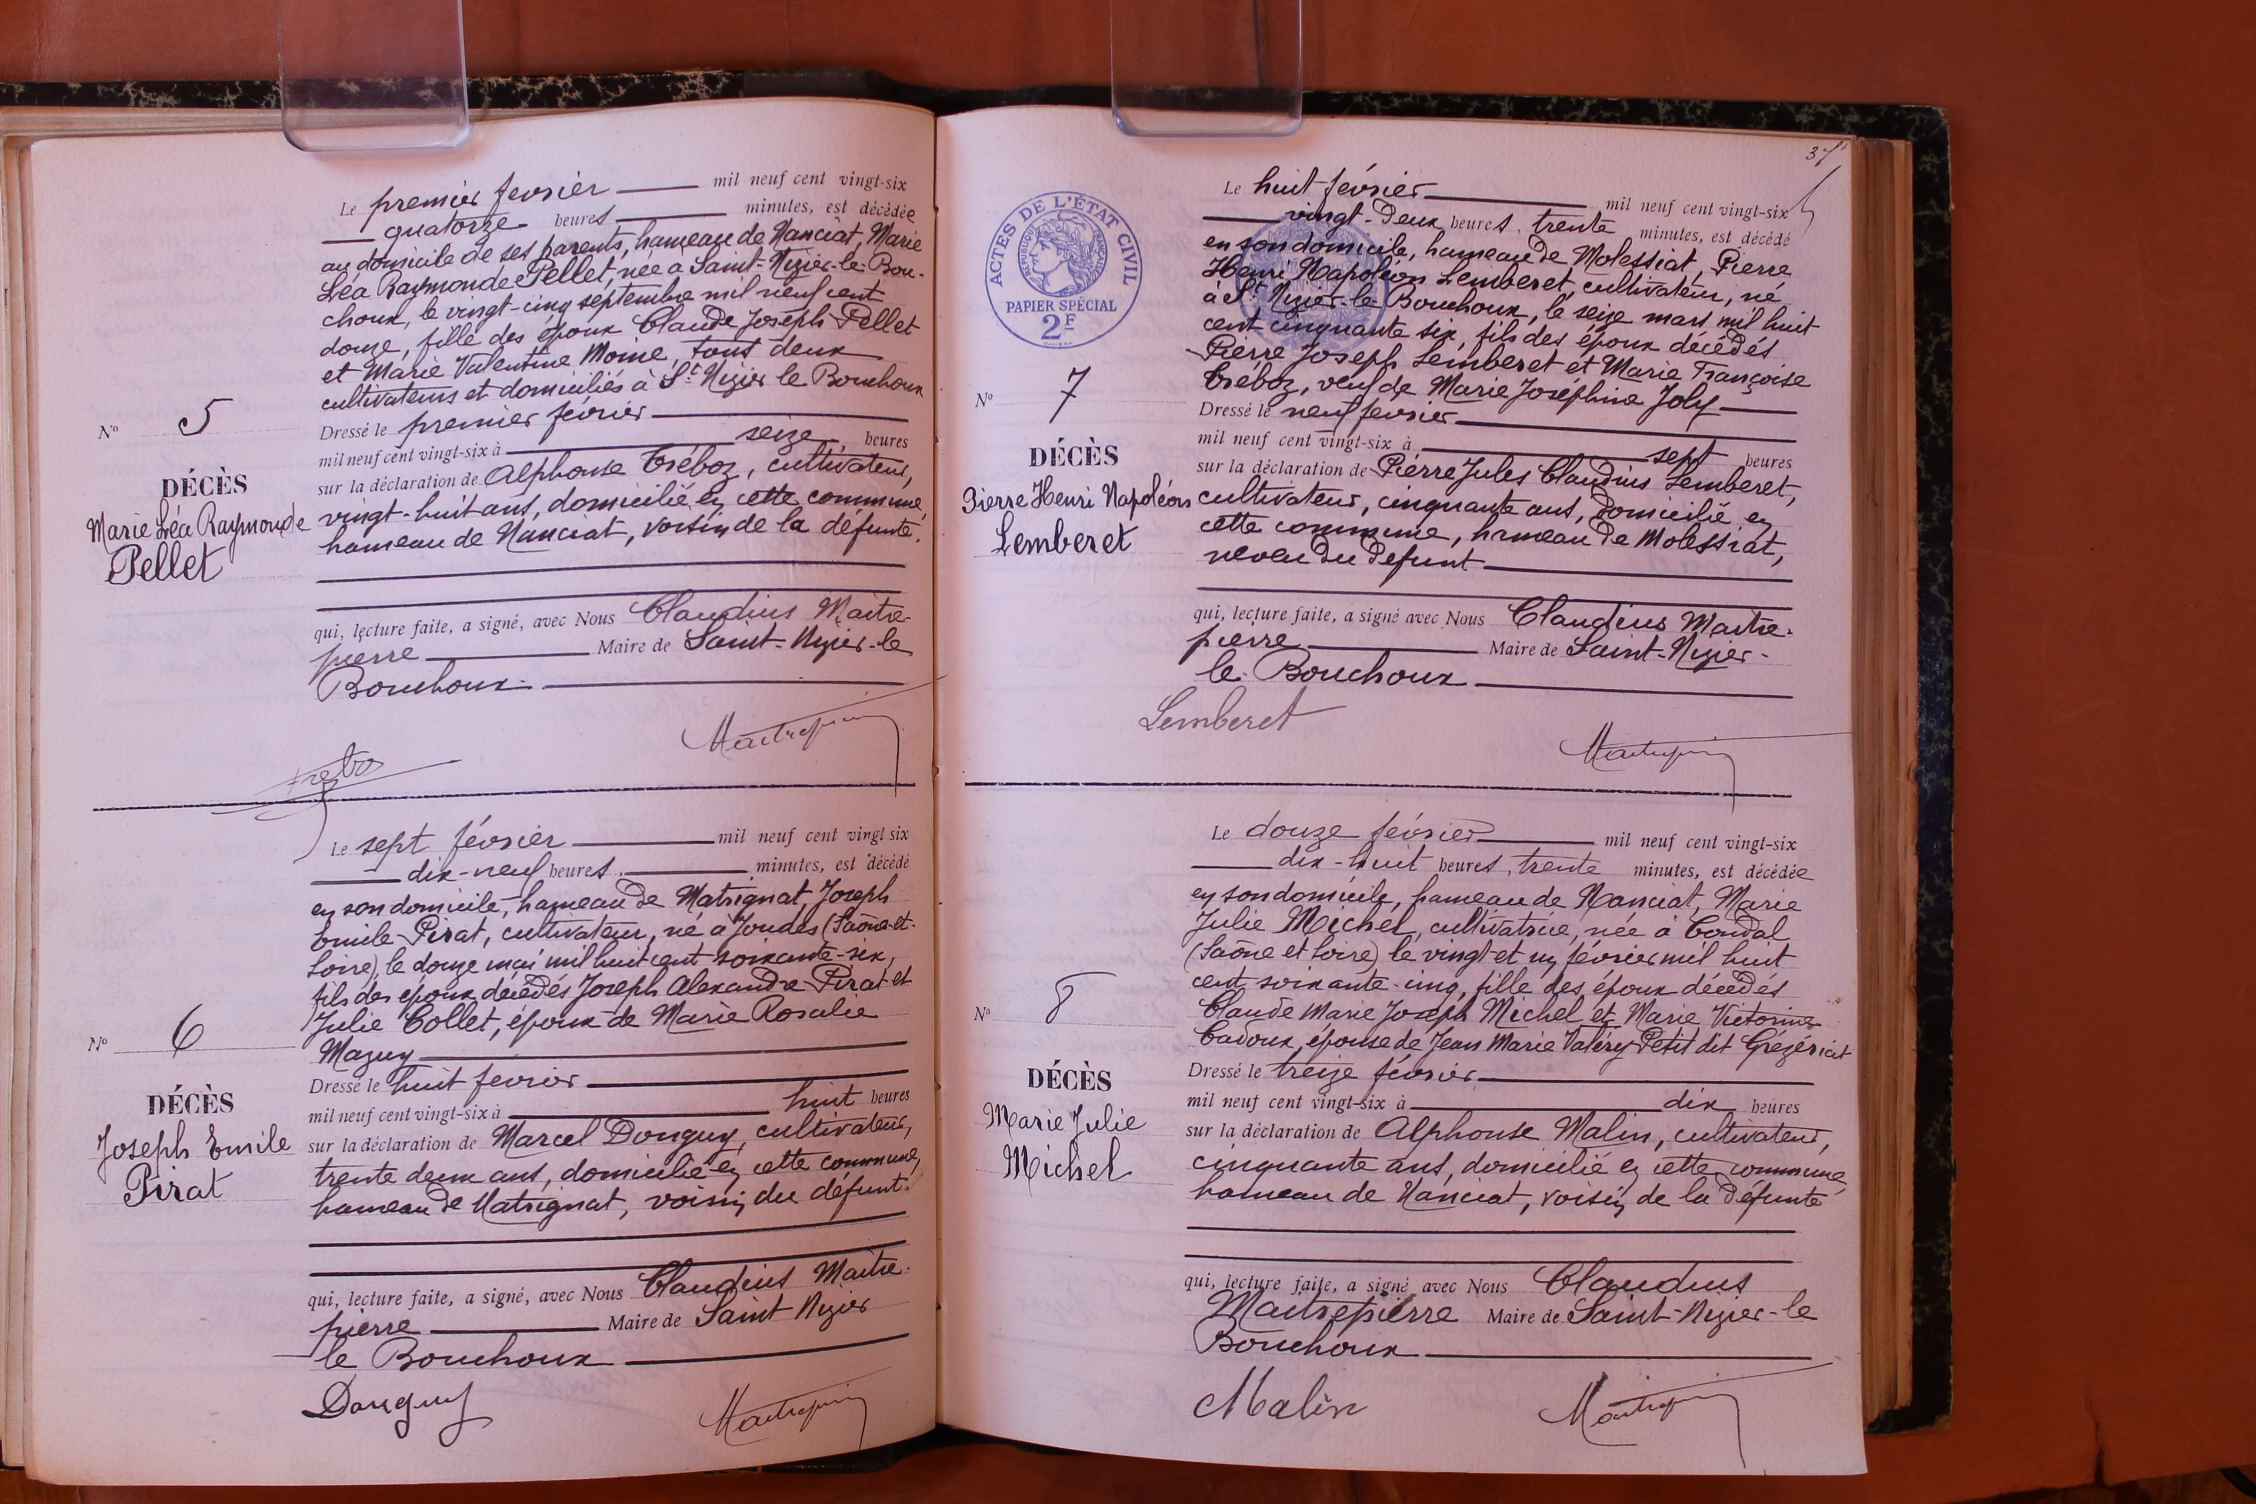 Le premier fevrier mil neuf cent vingt-six
quatorze heures minutes, est décédée
au domicile de ses parents, hameau de Nanciat, Marie
Léa Raymonde Pellet, née à Saint-Nizier-le-Bou-
choux, le vingt-cinq septembre mil neuf cent
douze, fille des époux Claude Joseph Pellet
et Marie Valentine Moine, tous deux
cultivateurs et domiciliés à St Nizier le Bouchoux
Dressé le premier février
mil neuf cent vingt-six à seize heures
sur la déclaration de Alphonse Tréboz, cultivateur,
vingt-huit ans, domicilié en cette commune,
hameau de Nanciat, voisin de la défunte.
qui, lecture faite, a signé, avec Nous Claudius Maitre-
pierre Maire de Saint-Nizier-le
Bouchoux
No 5
DÉCÈS
Marie Léa Raymonde
Pellet
Le sept février mil neuf cent vingt six
dix-neuf heures minutes, est décédé
en son domicile, hameau de Matrignat, Joseph
Emile Pirat, cultivateur, né à Joudes (Saône-et-
Loire), le douze mai mil huit cent soixante-six,
fils des époux décédés Joseph Alexandre Pirat et
Julie Collet, époux de Marie Rosalie
Mazuy
Dressé le huit fevrier
mil neuf cent vingt-six à huit heures
sur la déclaration de Marcel Donguy, cultivateur,
trente deux ans, domicilié en cette commune,
hameau de Matrignat, voisin du défunt.
qui, lecture faite, a signé, avec Nous Claudius Maitre-
pierre Maire de Saint Nizier
le Bouchoux
Donguy
No 6
DÉCÈS
Joseph Emile
Pirat
37
ACTES DE L'ÉTAT CIVIL
RÉPUBLIQUE FRANÇAISE
PAPIER SPÉCIAL
2F
Le huit février mil neuf cent vingt-six
vingt-deux heures, trente minutes, est décédé
en son domicile, hameau de Molessiat, Pierre
Henri Napoléon Lemberet, cultivateur, né
à St Nizier-le Bouchoux, le seize mars mil huit
cent cinquante six, fils des époux décédés
Pierre Joseph Lemberet et Marie Françoise
Tréboz, veuf de Marie Joséphine Joly
Dressé le neuf fevrier
mil neuf cent vingt-six à sept heures
sur la déclaration de Pierre Jules Claudius Lemberet,
cultivateur, cinquante ans, domicilié en
cette commune, hameau de Molessiat,
neveu du défunt
qui, lecture faite, a signé avec Nous Claudius Maitre-
pierre Maire de Saint-Nizier-
le Bouchoux
Lemberet
No 7
DÉCÈS
Pierre Henri Napoléon
Lemberet
Le douze février mil neuf cent vingt-six
dix-huit heures, trente minutes, est décédée
en son domicile, hameau de Nanciat, Marie
Julie Michel, cultivatrice, née à Condal
(Saône et Loire) le vingt et un février mil huit
cent soixante-cinq, fille des époux décédés
Claude Marie Joseph Michel et Marie Victorine
Cadoux, épouse de Jean Marie Valéry Petit dit Grézériat
Dressé le treize février
mil neuf cent vingt-six à dix heures
sur la déclaration de Alphonse Malin, cultivateur,
cinquante ans, domicilié en cette commune,
hameau de Nanciat, voisin de la défunte
qui, lecture faite, a signé avec Nous Claudius
Maitrepierre Maire de Saint-Nizier-le
Bouchoux
Malin
No 8
DÉCÈS
Marie Julie
Michel